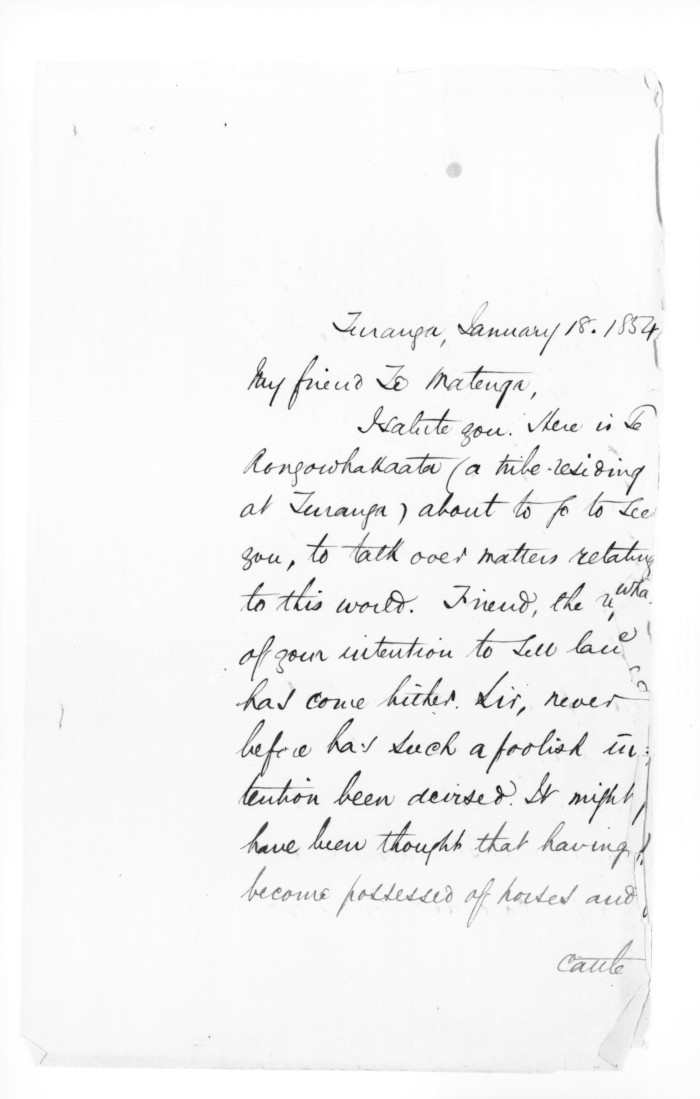 Turanga, January 18. 1854
My friend Te Matenga,
I salute you. Here is Te
Rongowhakaata (a tribe residing
at Turanga) about to go to see
you, to talk over matters relating
to this world. Friend, the
of your intention to sell land
has come hither. Sir, never
before has such a foolish in=
tention been devised. It might
have been thought that having
become possessed of horses and
cattle